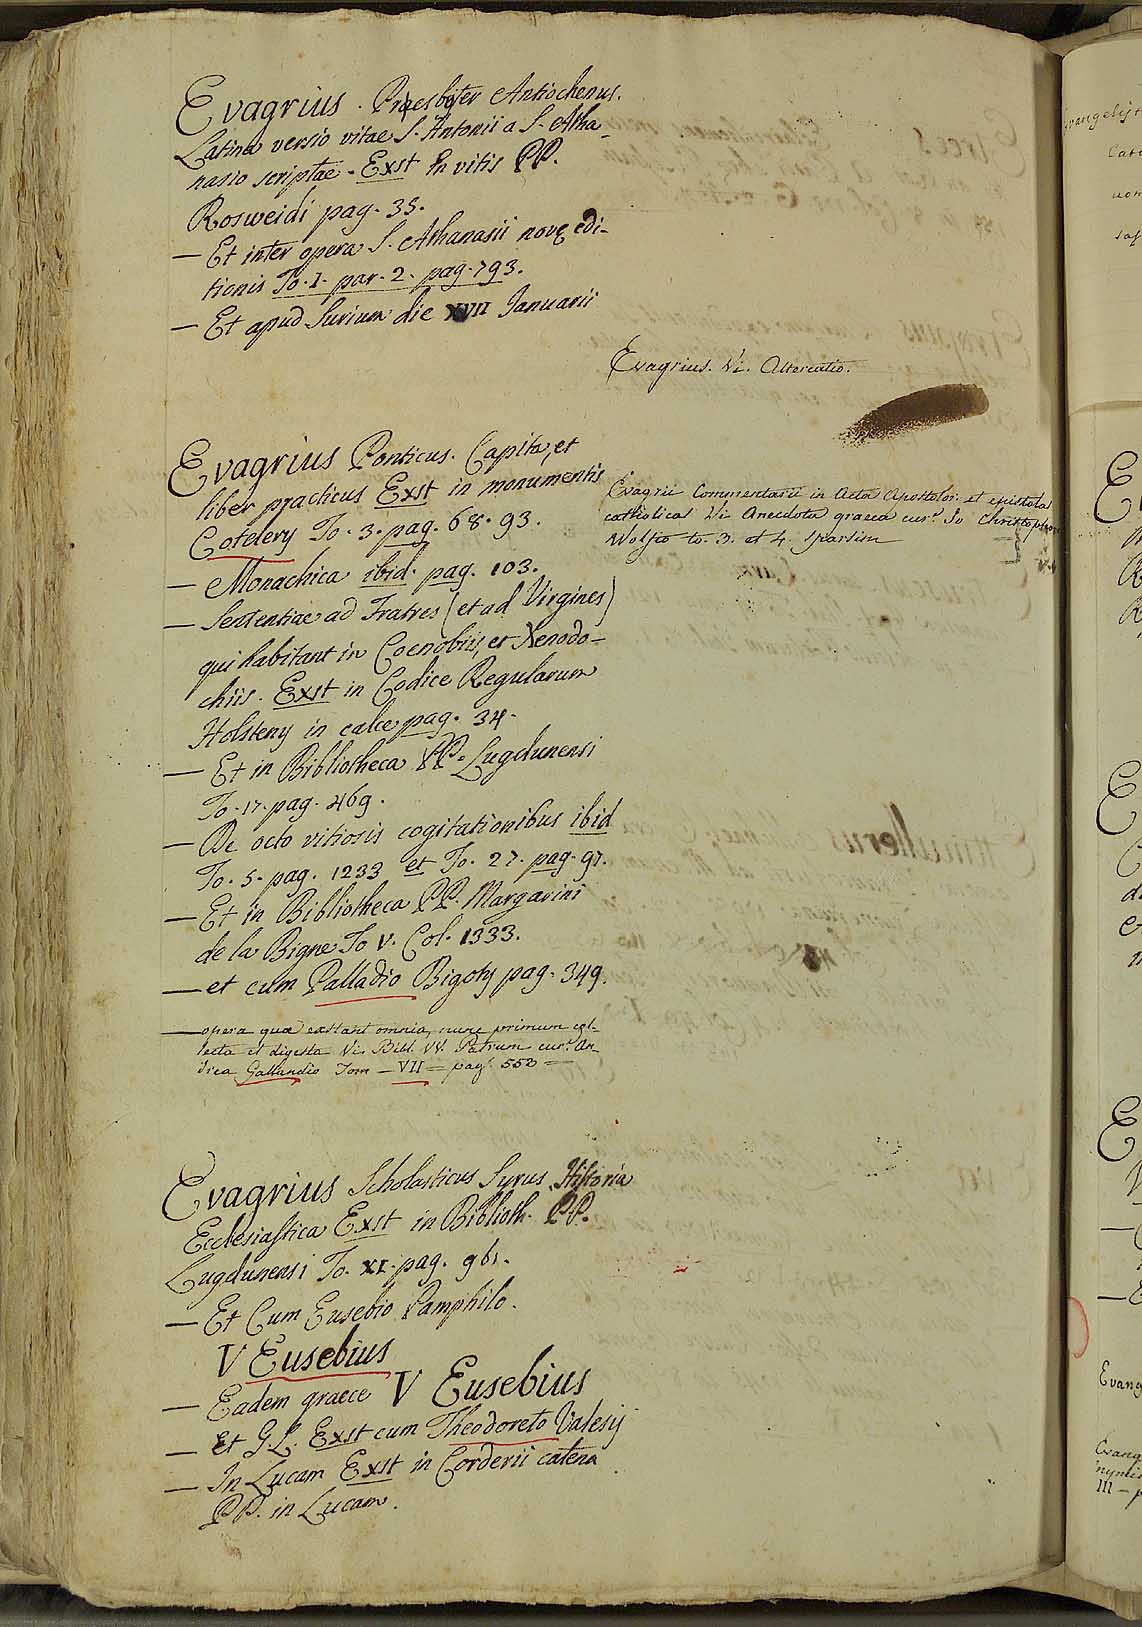 Evagrius. Præsbiter Antiochenus.
Latina versio vitae S. Antonii a S. Atha-
nasio scriptae. Exst in vitis PP.
Rosweidi pag. 35.
— Et inter opera S. Athanasii novę edi-
tionis To. I. par. 2. pag. 793.
— Et apud Surium die XVII Januarii
Evagrius. Vi. Altercatio.
Evagrius Ponticus. Capita, et
liber practicus Exst in monumentis
Cotelery To. 3. pag. 68. 93.
— Monachica ibid. pag. 103.
— Sententiae ad Fratres (et ad Virgines)
qui habitant in Coenobiis, et Xenodo-
chiis. Exst in Codice Regularum
Holsteny in calce pag. 34.
— Et in Bibliotheca VV. PP. Lugdunensi
To. 17. pag. 469.
— De octo vitiosis cogitationibus ibid
To. 5. pag. 1233 et To. 27. pag. 97.
— Et in Bibliotheca PP. Margarini
de la Bigne To V. Col. 1333.
— et cum Palladio Bigoty pag. 349.
— opera quæ extant omnia, nunc primum col-
lecta et digesta Vi. Bibl. VV. Patrum cur.e An-
drea Gallandio Tom — VII = pag. 552 =
Evagrii Commentarii in Acta Apostolor. et epistolas
catholicas Vi Anecdota graeca cur.e Io Christophoro
Wolfio to. 3. et 4. sparsim
Evagrius Scholasticus Syrus. Historia
Ecclesiastica Exst in Biblioth. PP.
Lugdunensi To. XI. pag. 961.
— Et Cum Eusebio Pamphilo.
V Eusebius
— Eadem graece V Eusebius
— et G. L. Exst cum Theodoreto Valesij
— In Lucam Exst in Corderii catena
PP. in Lucam.